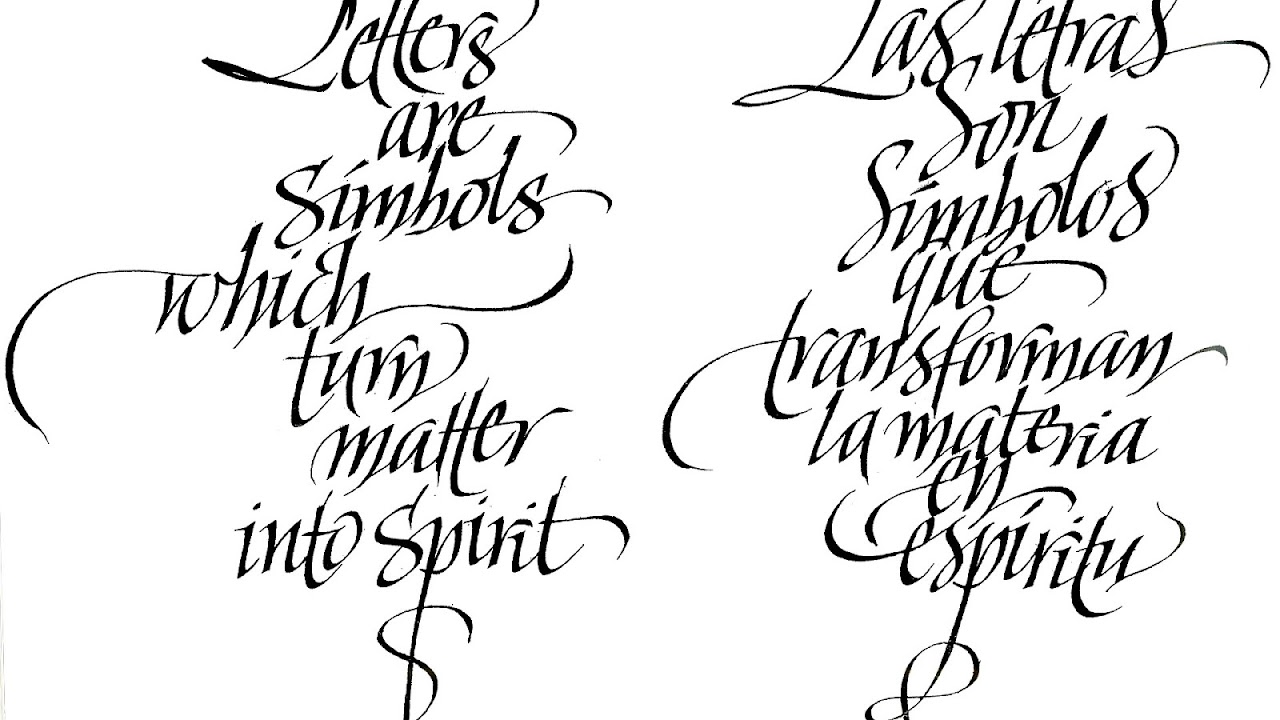 Letters
are
Símbols
which
turn
matter
into Spirit
Las letras
Son
Símbolos
que
transforman
la materia
en
espíritu